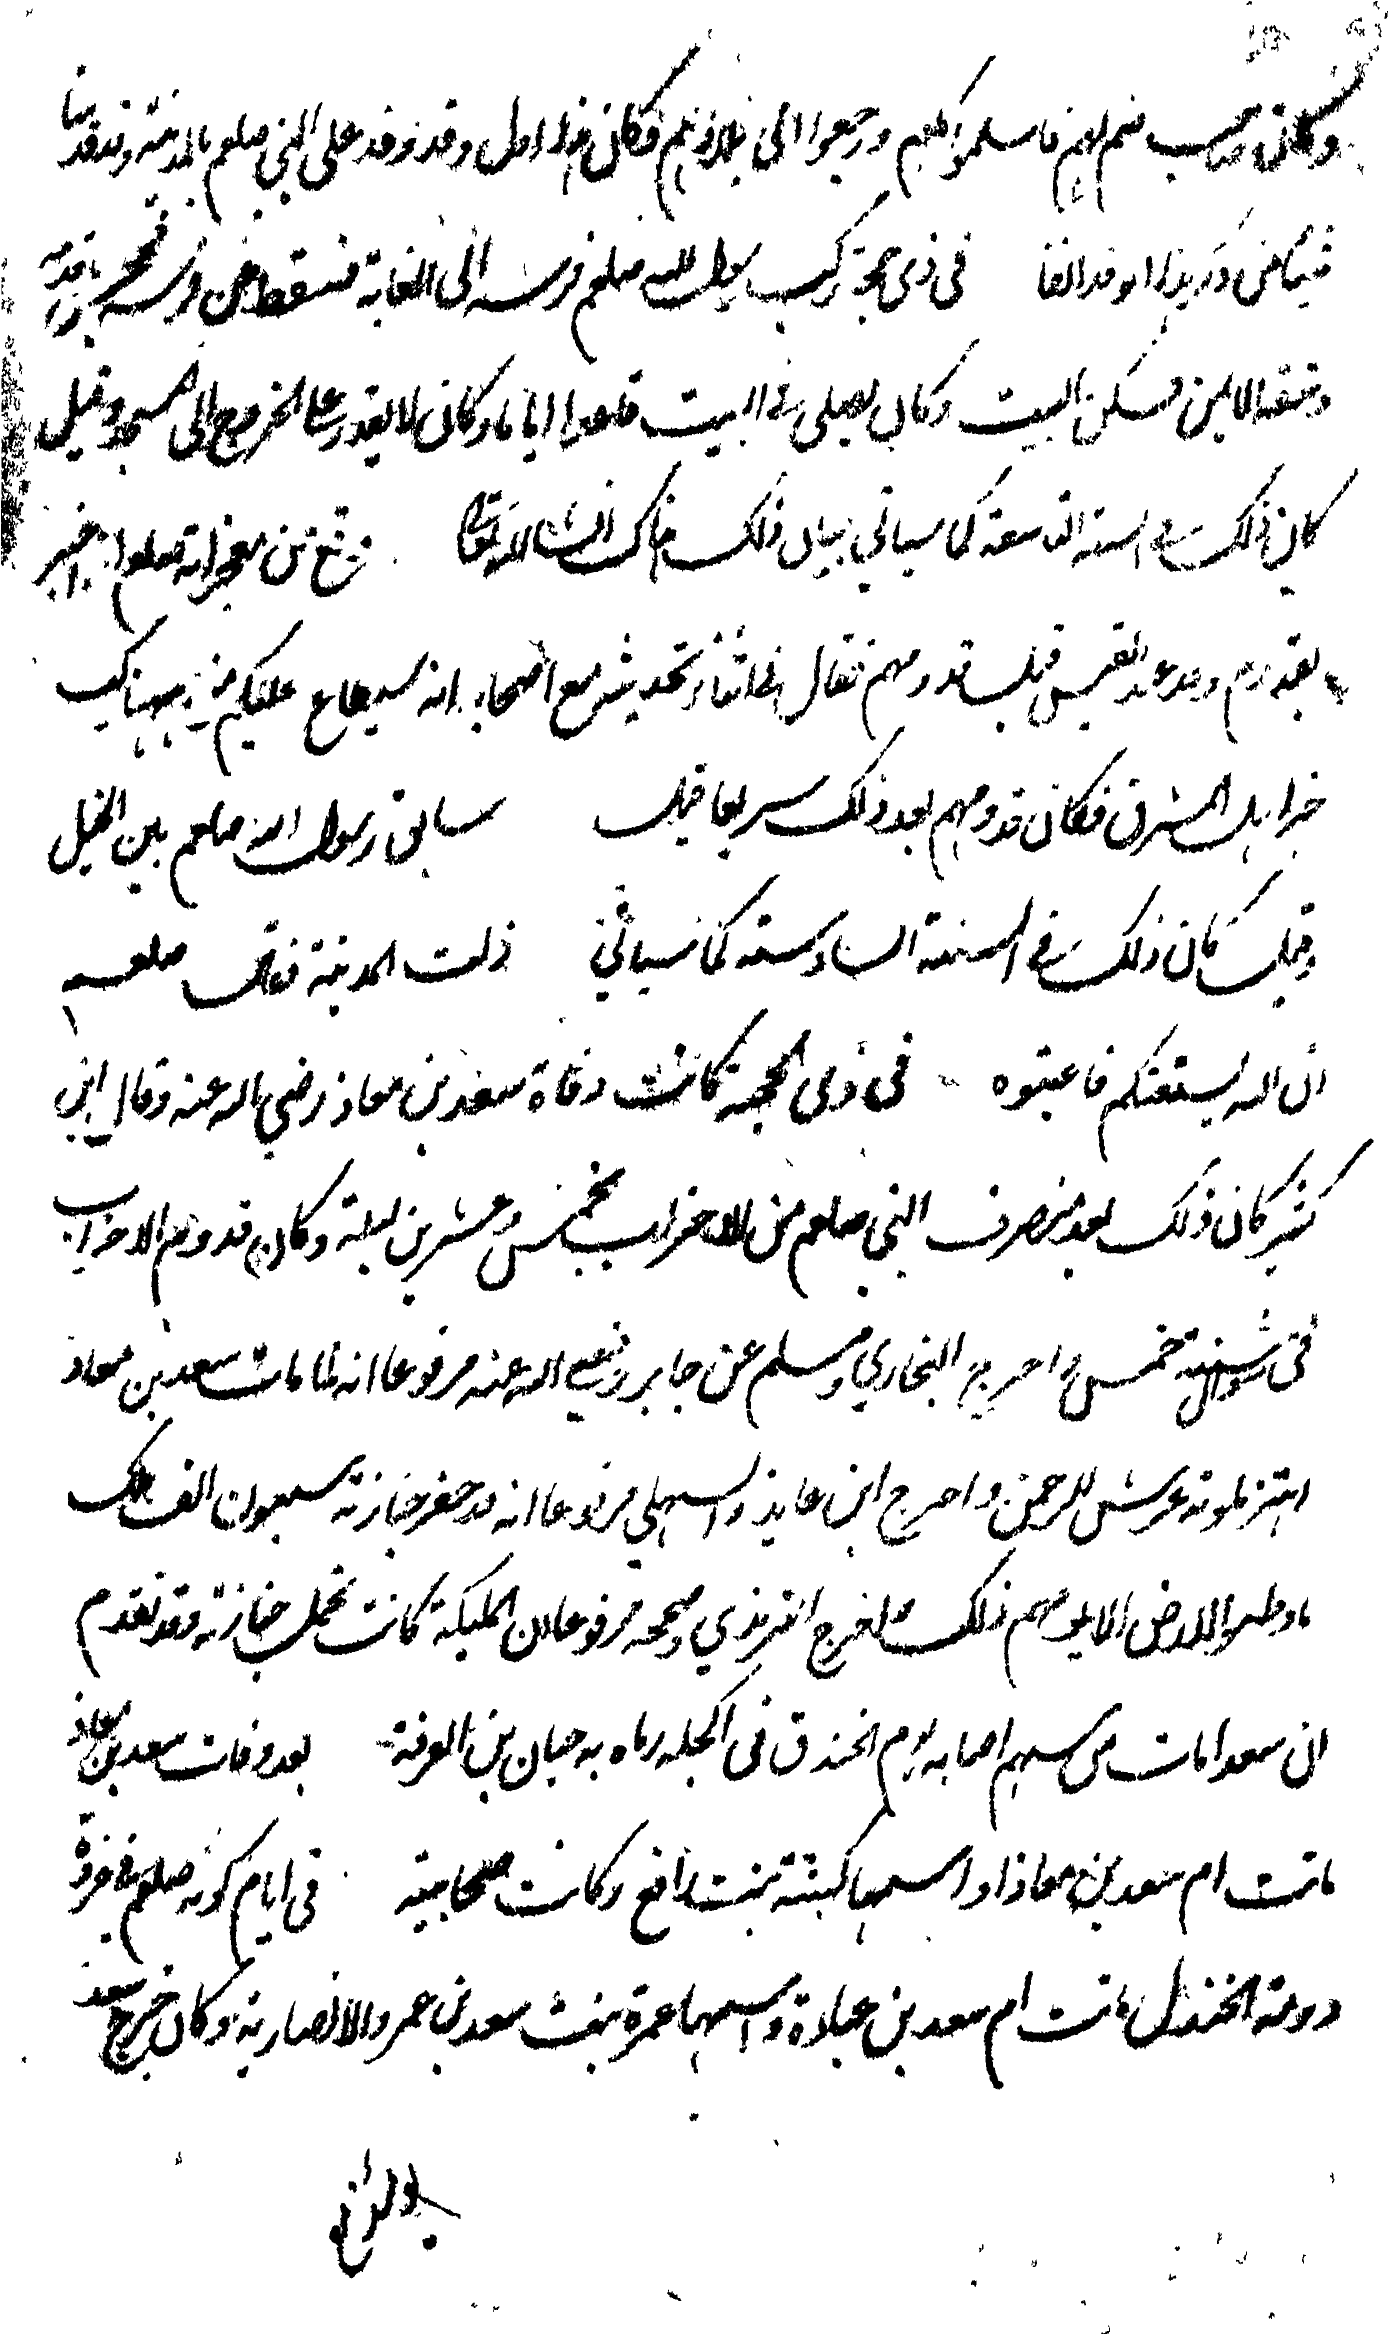 وكان صاحب فيهم فاسلموا كلهم ورجعوا الى بلادهم فكان هذا اول وفد وفد على النبي صلعم بالمدينة وقد قدمنا
في ذي حجة ركب رسول الله صلعم فرسه الى الغابة فسقط عن فرسه فجحش
وشقه الايمن فسكن البيت وكان يصلي في البيت قاعدا اياما وكان لا يقدر على الخروج الى المسجد وقيل
كان ذلك في السنة التاسعة كما سياتي بيان ذلك هناك ان شاء الله تعالى وقع من معجزاته صلعم اخبر
بقدوم وفد عبد القيس قبل قدومهم فقال لما تحديثه مع اصحابه انه سيطلع عليكم من ههنا ركب
خير اهل المشرق فكان قدومهم بعد ذلك سريعا قيل سابق رسول الله صلعم بين الخيل
وقيل كان ذلك في السنة السادسة كما سياتي زلزلت المدينة فقال صلعم
ان الله يستعتبكم فاعتبوه في ذي الحجة كانت وفاة سعد بن معاذ رضي الله عنه وقال ابن
كثير كان ذلك بعد منصرف النبي صلعم من الاحزاب بخمس وعشرين ليلة وكان قدوم الاحزاب
في شوال سنة خمس واخرج البخاري ومسلم عن جابر رضي الله عنه مرفوعا انه لما مات سعد بن معاذ
اهتز لموته عرش الرحمن واخرج ابن عايذ والسهيلي مرفوعا انه قد حضر جنازته سبعون الف ملك
ما وطئوا الارض الا يومهم ذلك واخرج الترمذي وصححه مرفوعا ان الملئكة كانت تحمل جنازته وقد تقدم
ان سعدا مات من سهم اصابه يوم الخندق في اكحله رماه به حبان بن العرقة بعد وفات سعد بن معاذ
ماتت ام سعد بن معاذ واسمها كبشة بنت رافع وكانت صحابية في ايام كونه صلعم في غزوة
دومة الجندل ماتت ام سعد بن عبادة واسمها عمرة بنت سعد بن عمرو الانصارية وكان خرج سعد